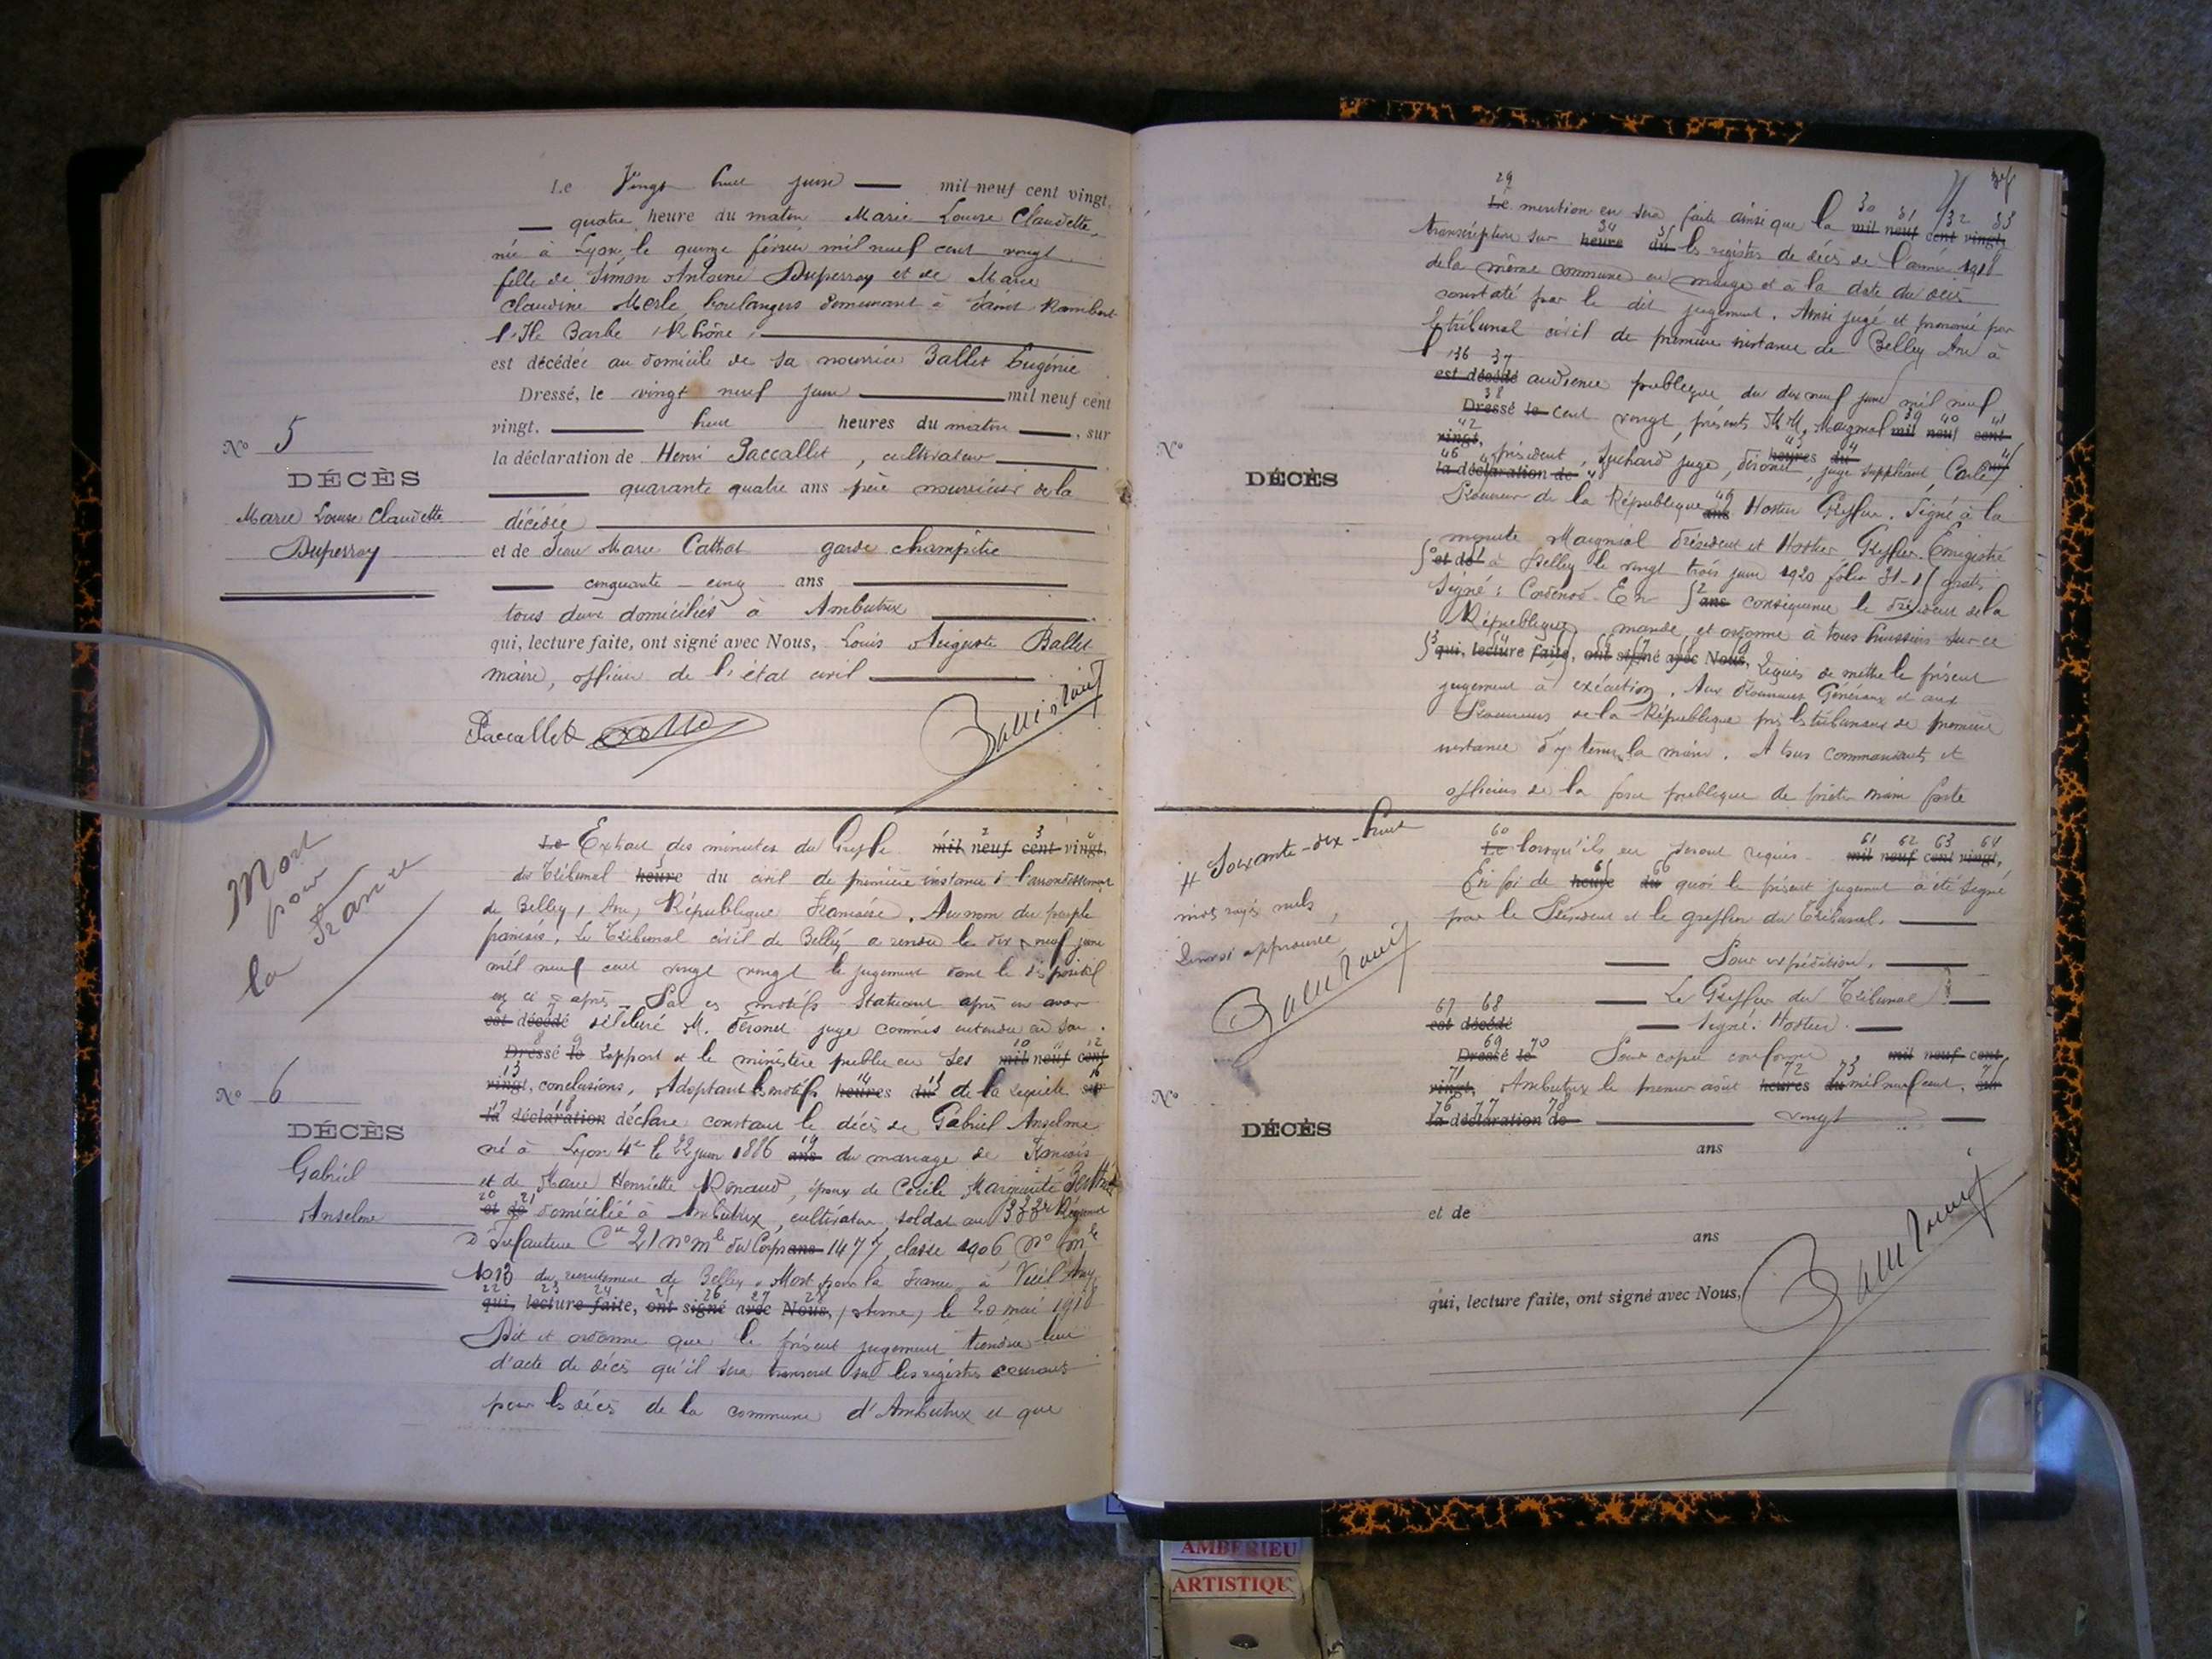 Le Vingt huit juin mil neuf cent vingt,
quatre heure du matin Marie Louise Claudette
née à Lyon, le quinze février mil neuf cent vingt
fille de Simon Antoine Duperray et de Marie
Claudine Merle, boulangers demeurant à Saint Rambert
l'Ile Barbe (Rhône)
est décédée au domicile de sa nourrice Ballet Eugénie
Dressé, le vingt neuf juin mil neuf cent
vingt, huit heures du matin, sur
la déclaration de Henri Paccallet, cultivateur
quarante quatre ans père nourricier de la
décédée
et de Jean Marie Cathot garde champêtre
cinquante-cinq ans
tous deux domiciliés à Ambutrix
qui, lecture faite, ont signé avec Nous, Louis Auguste Ballet
maire, officier de l'état civil
Paccallet
N° 5
DÉCÈS
Marie Louise Claudette
Duperray
Mort
pour
la France
N° 6
DÉCÈS
Gabriel
Anselme
Le Extrait des minutes du Greffe mil neuf cent vingt,
du Tribunal heure du civil de première instance de l'arrondissement
de Belley, Ain, République Française. Au nom du peuple
français. Le Tribunal civil de Belley a rendu le dix neuf juin
mil neuf cent vingt vingt le jugement dont le dispositif
ci-après
est décédé délibéré M. juge commis entendu en son
Dressé le rapport et le ministère public en ses mil neuf cent
vingt, conclusions, Adoptant les motifs heures du de la requête sur
la déclaration déclare constant le décès de Gabriel Anselme
né à Lyon 4e le 22 juin 1886 ans du mariage de François
et de Marie Henriette Renaud, époux de Cécile Marguerite
et de domicilié à Ambutrix, cultivateur, soldat au 333e Régiment
d'Infanterie Cie 21 no mle du Corps ans 1477, classe 1906, No mle
1013 du recrutement de Belley. Mort pour la France, à Vieil Arcy
qui, lecture faite, ont signé avec Nous, (Aisne) le 20 mai 1918
Dit et ordonne que le présent jugement tiendra lieu
d'acte de décès qu'il sera transcrit sur les registres courants
pour les décès de la commune d'Ambutrix et que
29
Le mention en sera faite ainsi que la mil neuf cent vingt,
transcription sur heure du les registres de décès de l'année 1918
de la même commune en marge et à la date du décès
constaté par le dit jugement. Ainsi jugé et prononcé par
le tribunal civil de première instance de Belley Ain à
est décédé audience publique du dix neuf juin mil neuf
Dressé le cent vingt, présents MM. Maignial mil neuf cent
vingt, président, Suchard juge, heures du juge suppléant, Carle
la déclaration de
Procureur de la République ans Hostier Greffier. Signé à la
minute Maignial Président et Hostier Greffier. Enregistré
et de à Belley le vingt trois juin 1920 folio
Signé: En ans conséquence le Président de la
République mande et ordonne à tous huissiers sur ce
qui, lecture faite, ont signé avec Nous, requis de mettre le présent
jugement à exécution. Aux Procureurs Généraux et aux
Procureurs de la République près les tribunaux de première
instance d'y tenir la main. A tous commandants et
officiers de la force publique de prêter main forte
N°
DÉCÈS
60 61 62 63 64
Le lorsqu'ils en seront requis mil neuf cent vingt,
En foi de heure du quoi le présent jugement a été signé
par le Président et le greffier du Tribunal.
Pour expédition,
Le Greffier du Tribunal
67 68
est décédé Signé: Hostier
69 70
Dressé le Pour copie conforme mil neuf cent
vingt, Ambutrix le premier août heures du mil neuf cent, sur
la déclaration de vingt
ans
et de
ans
qui, lecture faite, ont signé avec Nous,
Soixante-dix-huit
mots rayés nuls
N°
DÉCÈS
AMBERIEU
ARTISTIQU